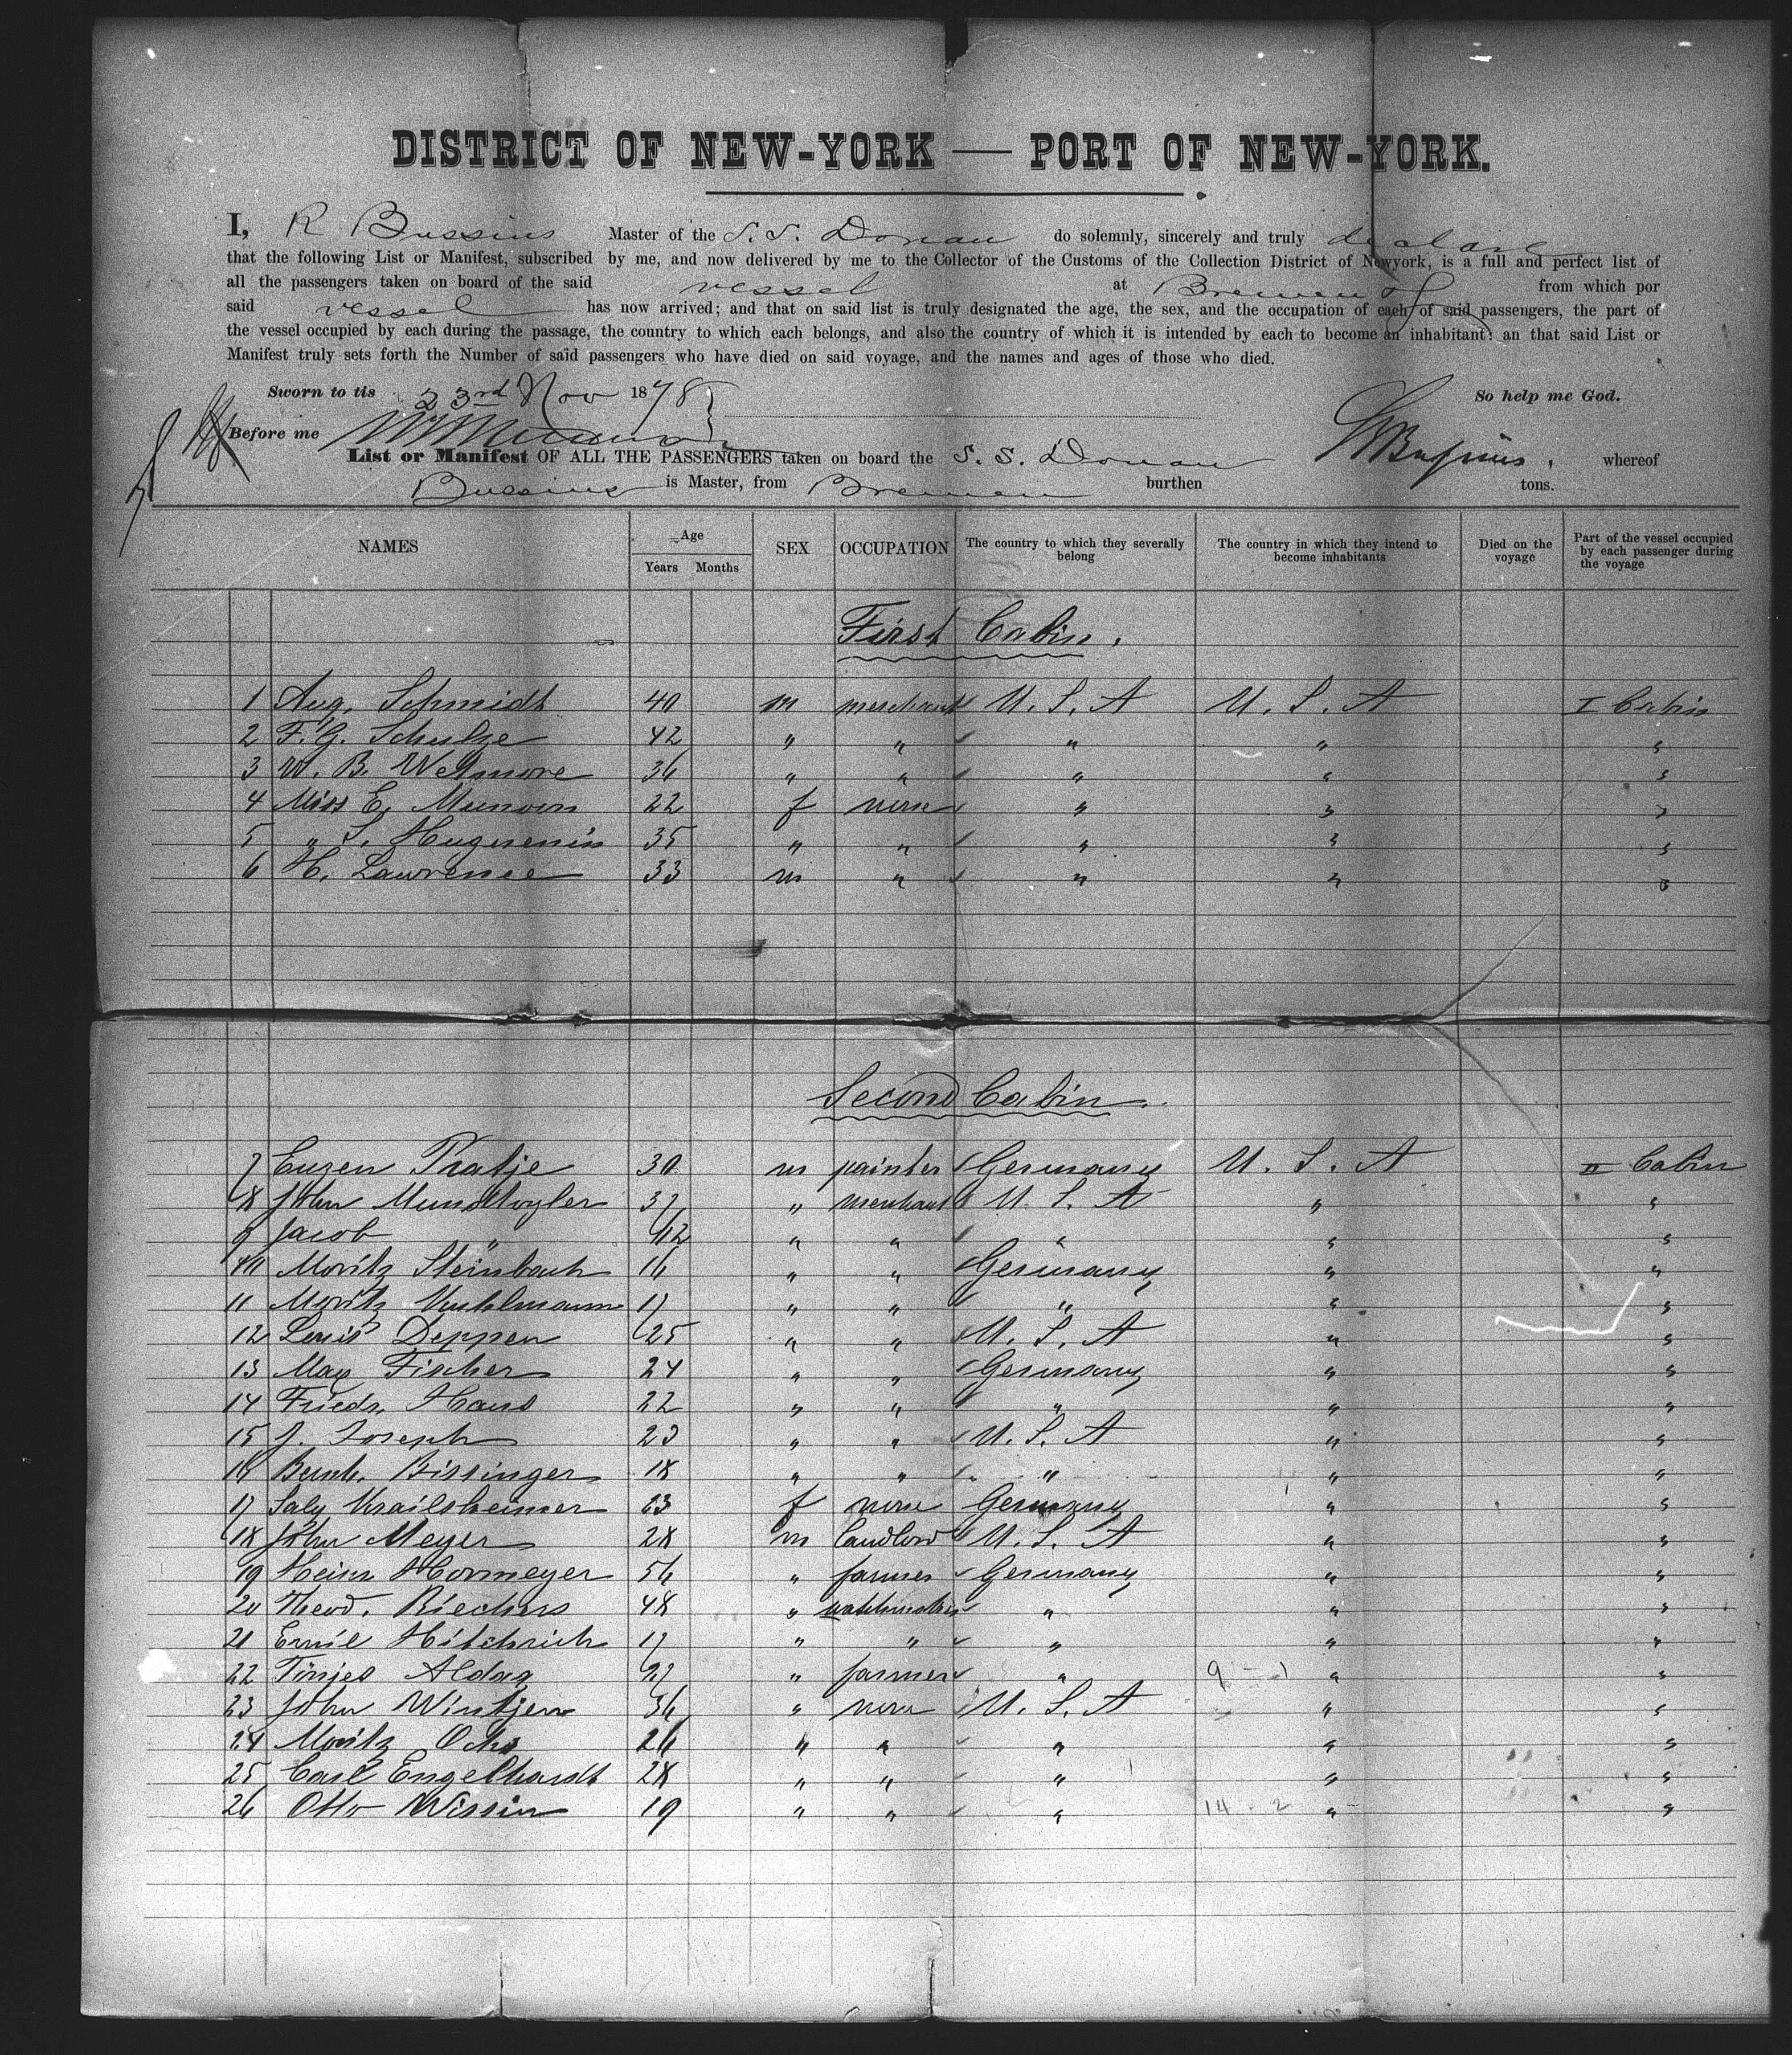 DISTRICT OF NEW-YORK — PORT OF NEW-YORK.
I, R Bussius Master of the S. S. Donau do solemnly, sincerely and truly declare
that the following List or Manifest, subscribed by me, and now delivered by me to the Collector of the Customs of the Collection District of Newyork, is a full and perfect list of
all the passengers taken on board of the said vessel at Bremen from which por
said vessel has now arrived; and that on said list is truly designated the age, the sex, and the occupation of each of said passengers, the part of
the vessel occupied by each during the passage, the country to which each belongs, and also the country of which it is intended by each to become an inhabitant: an that said List or
Manifest truly sets forth the Number of said passengers who have died on said voyage, and the names and ages of those who died.
Sworn to tis 23rd Nov 1878 So help me God.
Before me
List or Manifest OF ALL THE PASSENGERS taken on board the S. S. Donau RBussius, whereof
Bussius is Master, from Bremen burthen tons.
NAMES Age Years Months SEX OCCUPATION The country to which they severally belong The country in which they intend to become inhabitants Died on the voyage Part of the vessel occupied by each passenger during the voyage
First Cabin.
1 Aug. Schmidt 40 m merchant U. S. A U. S. A I Cabin
2 F. G. Schulze 42 " " " " "
3 W. B. Wetmore 36 " " " " "
4 Miss E. 22 f none " " "
5 " S. Huguenin 35 " " " " "
6 H. Lawrence 33 m " " " "
Second Cabin.
7 Eugen Pratje 30 m painter Germany U. S. A II Cabin
8 John 37 " merchant U. S. A " "
9 Jacob " " " " " "
10 Moritz Steinbach 16 " " Germany " "
11 Moritz 17 " " " " "
12 Louis Deppen 25 " " U. S. A " "
13 Max Fischer 24 " " Germany " "
14 Friedr. Haus 22 " " " " "
15 J. Joseph 23 " " U. S. A " "
16 Bernh. Bissinger 18 " " " " "
17 Saly Krailsheimer 23 f none Germany " "
18 John Meyer 28 m landlord U. S. A " "
19 Heinr. Hormeyer 56 " farmer Germany " "
20 Theod. Riechers 48 " " " "
21 Emil Hitchrich 17 " " " " "
22 Tönjes Aldag " farmer " " "
23 John Wintjen 36 " none U. S. A " "
24 Moritz Ochs 26 " " " " "
25 Carl Engelhardt 28 " " " " "
26 Otto Wissin 19 " " " 14 - 2 " "